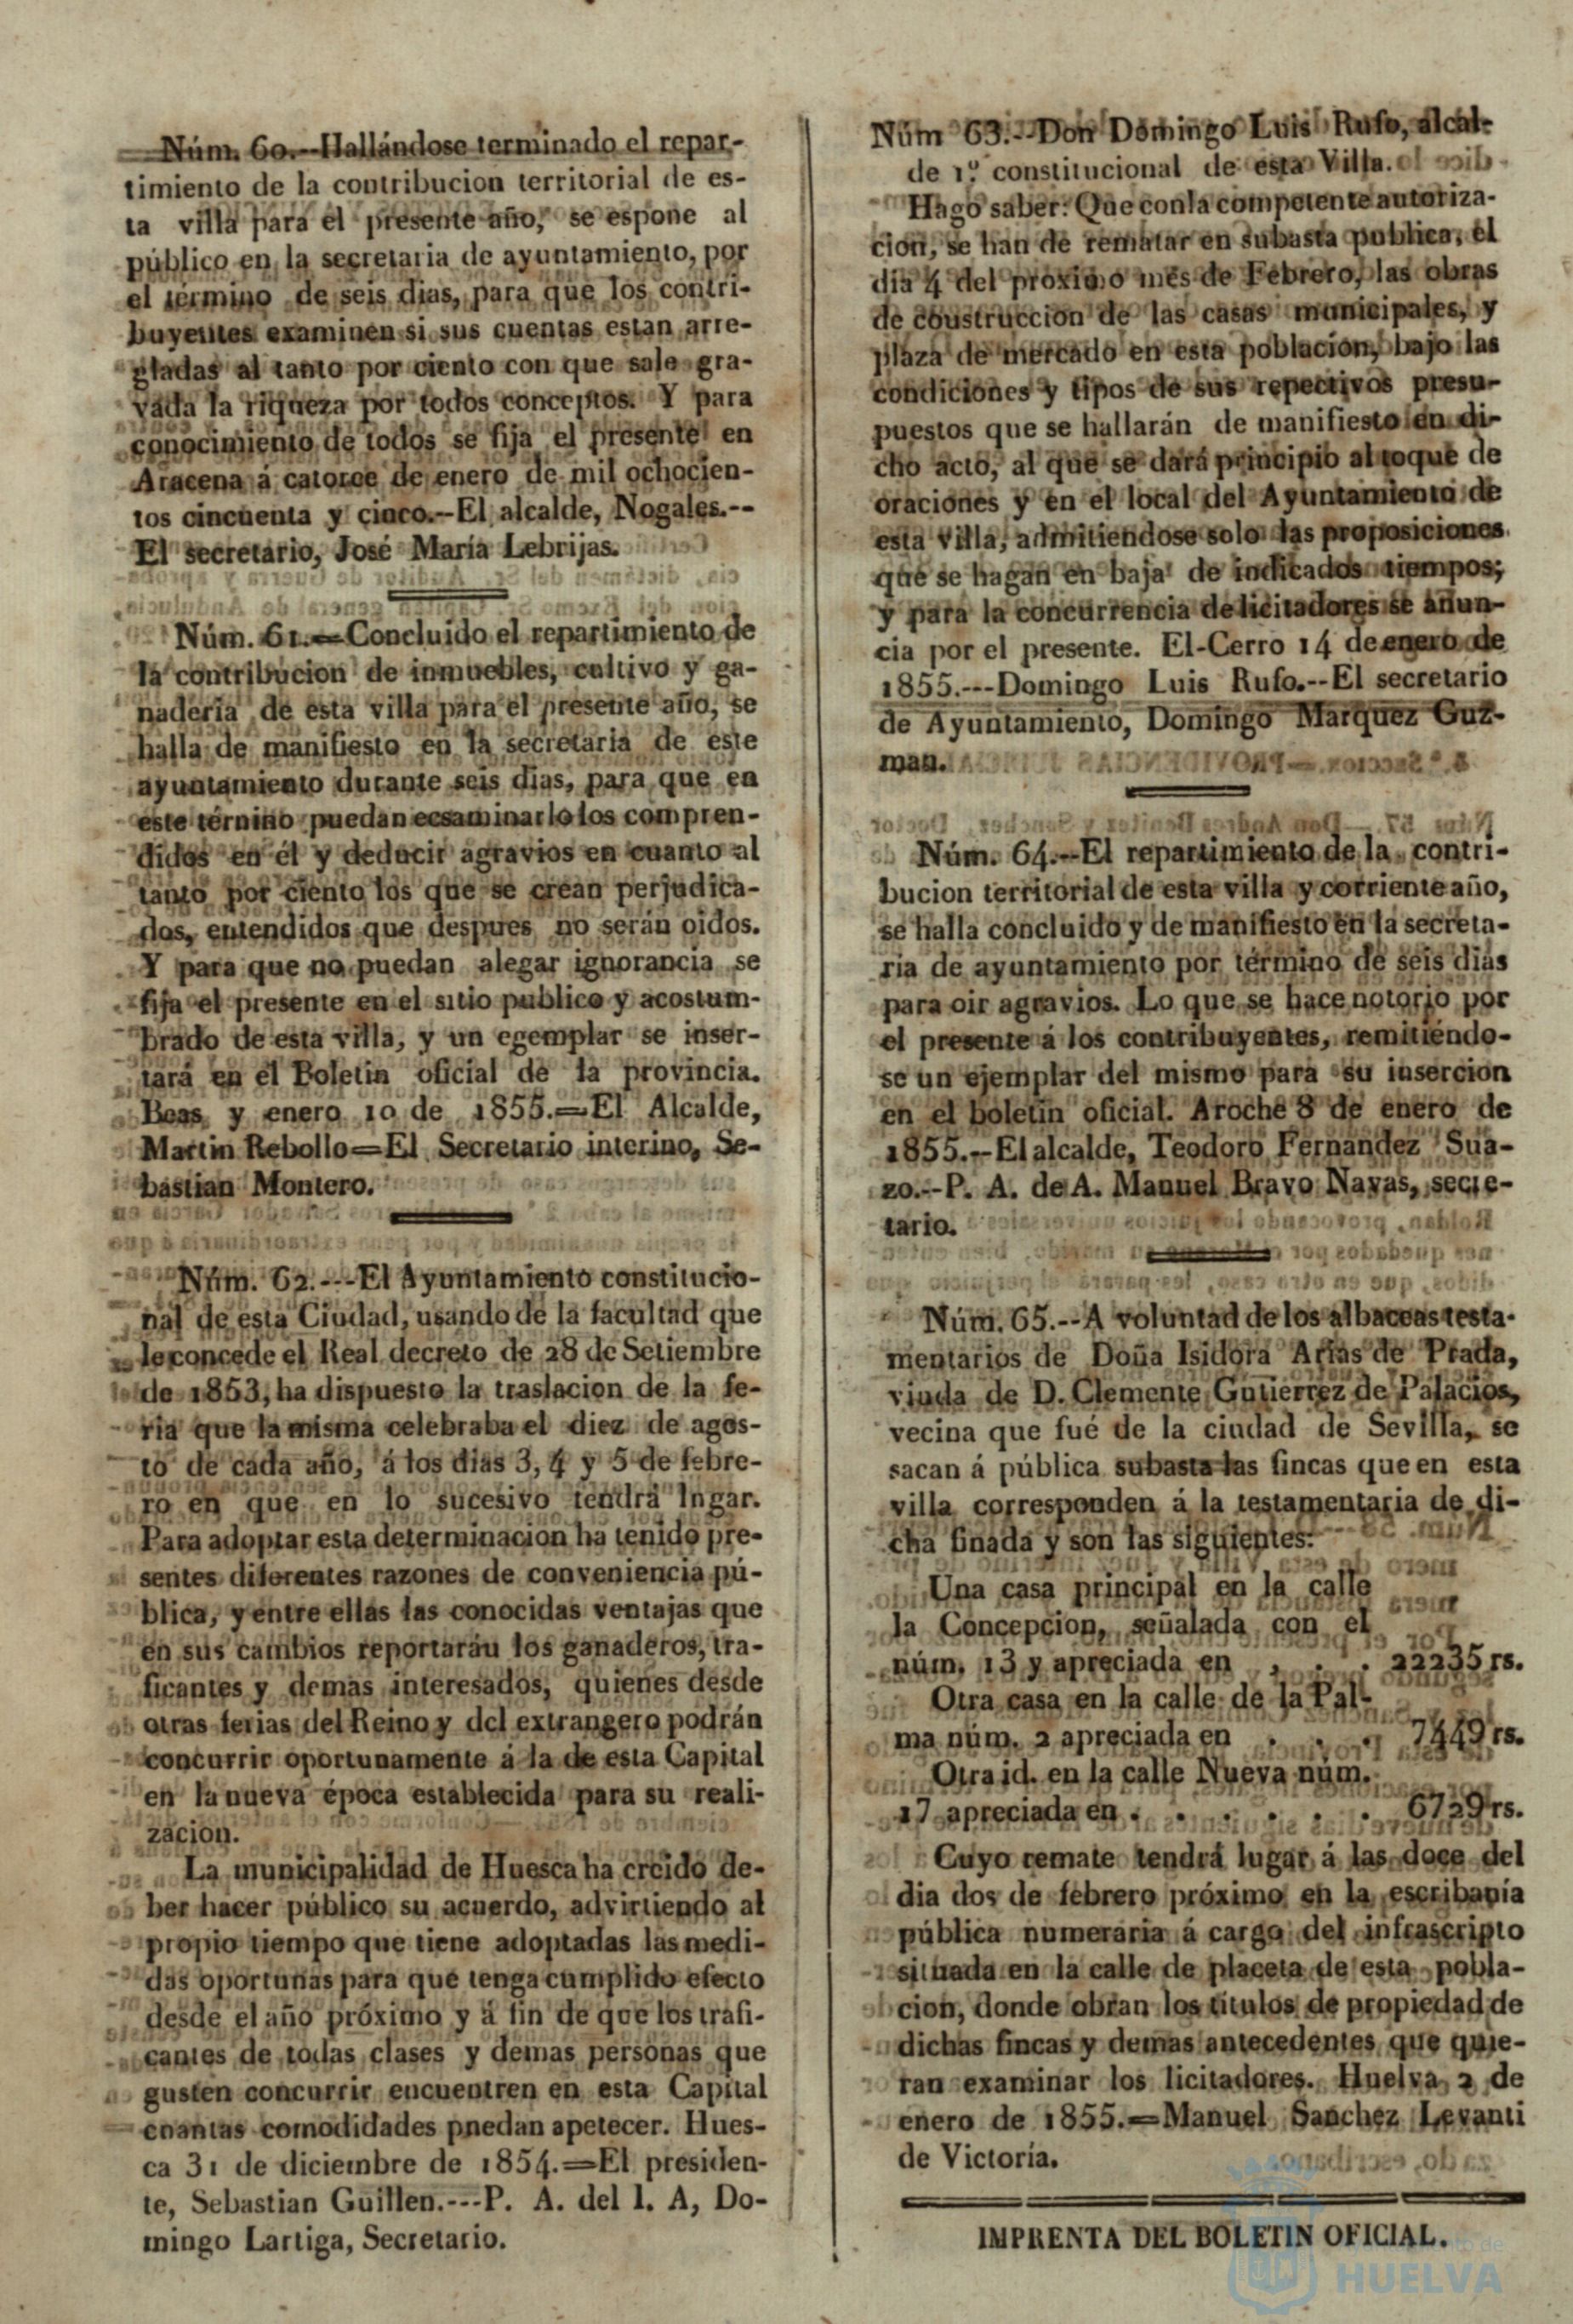 Núm. 60.--Hallándose terminado el repar-
timiento de la contribucion territorial de es-
ta villa para el presente año, se espone al
público en la secretaria de ayuntamiento, por
el término de seis dias, para que los contri-
buyentes examinen si sus cuentas estan arre-
gladas al tanto por ciento con que sale gra-
vada la riqueza por todos conceptos. Y para
conocimiento de todos se fija el presente en
Aracena á catorce de enero de mil ochocien-
tos cincuenta y cinco.--El alcalde, Nogales.--
El secretario, José María Lebrijas.
Núm. 61.=Concluido el repartimiento de
la contribucion de inmuebles, cultivo y ga-
nadería de esta villa para el presente año, se
halla de manifiesto en la secretaria de este
ayuntamiento durante seis dias, para que en
este término puedan ecsaminarlo los compren-
didos en él y deducir agravios en cuanto al
tanto por ciento los que se crean perjudica-
dos, entendidos que despues no serán oidos.
Y para que no puedan alegar ignorancia se
fija el presente en el sitio publico y acostum-
brado de esta villa, y un egemplar se inser-
tará en el Boletin oficial de la provincia.
Beas y enero 10 de 1855.=El Alcalde,
Martin Rebollo=El Secretario interino, Se-
bastian Montero.
Núm. 62.---El Ayuntamiento constitucio-
nal de esta Ciudad, usando de la facultad que
le concede el Real decreto de 28 de Setiembre
de 1853, ha dispuesto la traslacion de la fe-
ria que la misma celebraba el diez de agos-
to de cada año, á los dias 3, 4 y 5 de febre-
ro en que en lo sucesivo tendrá lngar.
Para adoptar esta determinacion ha tenido pre-
sentes diferentes razones de conveniencia pú-
blica, y entre ellas las conocidas ventajas que
en sus cambios reportarán los ganaderos, tra-
ficantes y demas interesados, quienes desde
otras ferias del Reino y del extrangero podrán
concurrir oportunamente á la de esta Capital
en la nueva época establecida para su reali-
zacion.
La municipalidad de Huesca ha creido de-
ber hacer público su acuerdo, advirtiendo al
propio tiempo que tiene adoptadas las medi-
das oportunas para que tenga cumplido efecto
desde el año próximo y á fin de que los trafi-
cantes de todas clases y demas personas que
gusten concurrir encuentren en esta Capital
cnantas comodidades pnedan apetecer. Hues-
ca 31 de diciembre de 1854.=El presiden-
te, Sebastian Guillen.---P. A. del I. A, Do-
mingo Lartiga, Secretario.
Núm 63.--Don Domingo Luis Rufo, alcal-
de 1.º constitucional de esta Villa.
Hago saber: Que con la competente autoriza-
cion, se han de rematar en subasta publica, el
dia 4 del próximo més de Febrero, las obras
de construccion de las casas municipales, y
plaza de mercado en esta poblacion, bajo las
condiciones y tipos de sus repectivos presu-
puestos que se hallarán de manifiesto en di-
cho acto, al que se dará principio al toque de
oraciones y en el local del Ayuntamiento de
esta villa, admitiendose solo las proposiciones
que se hagan en baja de indicados tiempos;
y para la concurrencia de licitadores se anun-
cia por el presente. El-Cerro 14 de enero de
1855.---Domingo Luis Rufo.--El secretario
de Ayuntamiento, Domingo Marquez Guz-
man.
Núm. 64.--El repartimiento de la contri-
bucion territorial de esta villa y corriente año,
se halla concluido y de manifiesto en la secreta-
ria de ayuntamiento por término de seis dias
para oir agravios. Lo que se hace notorio por
el presente á los contribuyentes, remitiéndo-
se un ejemplar del mismo para su insercion
en el boletin oficial. Aroche 8 de enero de
1855.--El alcalde, Teodoro Fernandez Sua-
zo.--P. A. de A. Manuel Bravo Navas, secre-
tario.
Núm. 65.--A voluntad de los albaceas testa-
mentarios de Doña Isidora Arias de Prada,
viuda de D. Clemente Gutierrez de Palacios,
vecina que fué de la ciudad de Sevilla, se
sacan á pública subasta las fincas que en esta
villa corresponden á la testamentaria de di-
cha finada y son las siguientes:
Una casa principal en la calle
la Concepcion, señalada con el
núm. 13 y apreciada en , . . 22235 rs.
Otra casa en la calle de la Pal-
ma núm. 2 apreciada en . . . 7449 rs.
Otra id. en la calle Nueva núm.
17 apreciada en . . . . . . 6729 rs.
Cuyo remate tendrá lugar á las doce del
dia dos de febrero próximo en la escribanía
pública numeraria á cargo del infrascripto
situada en la calle de placeta de esta pobla-
cion, donde obran los titulos de propiedad de
dichas fincas y demas antecedentes que quie-
ran examinar los licitadores. Huelva 2 de
enero de 1855.=Manuel Sanchez Levanti
de Victoría.
IMPRENTA DEL BOLETIN OFICIAL.
HUELVA